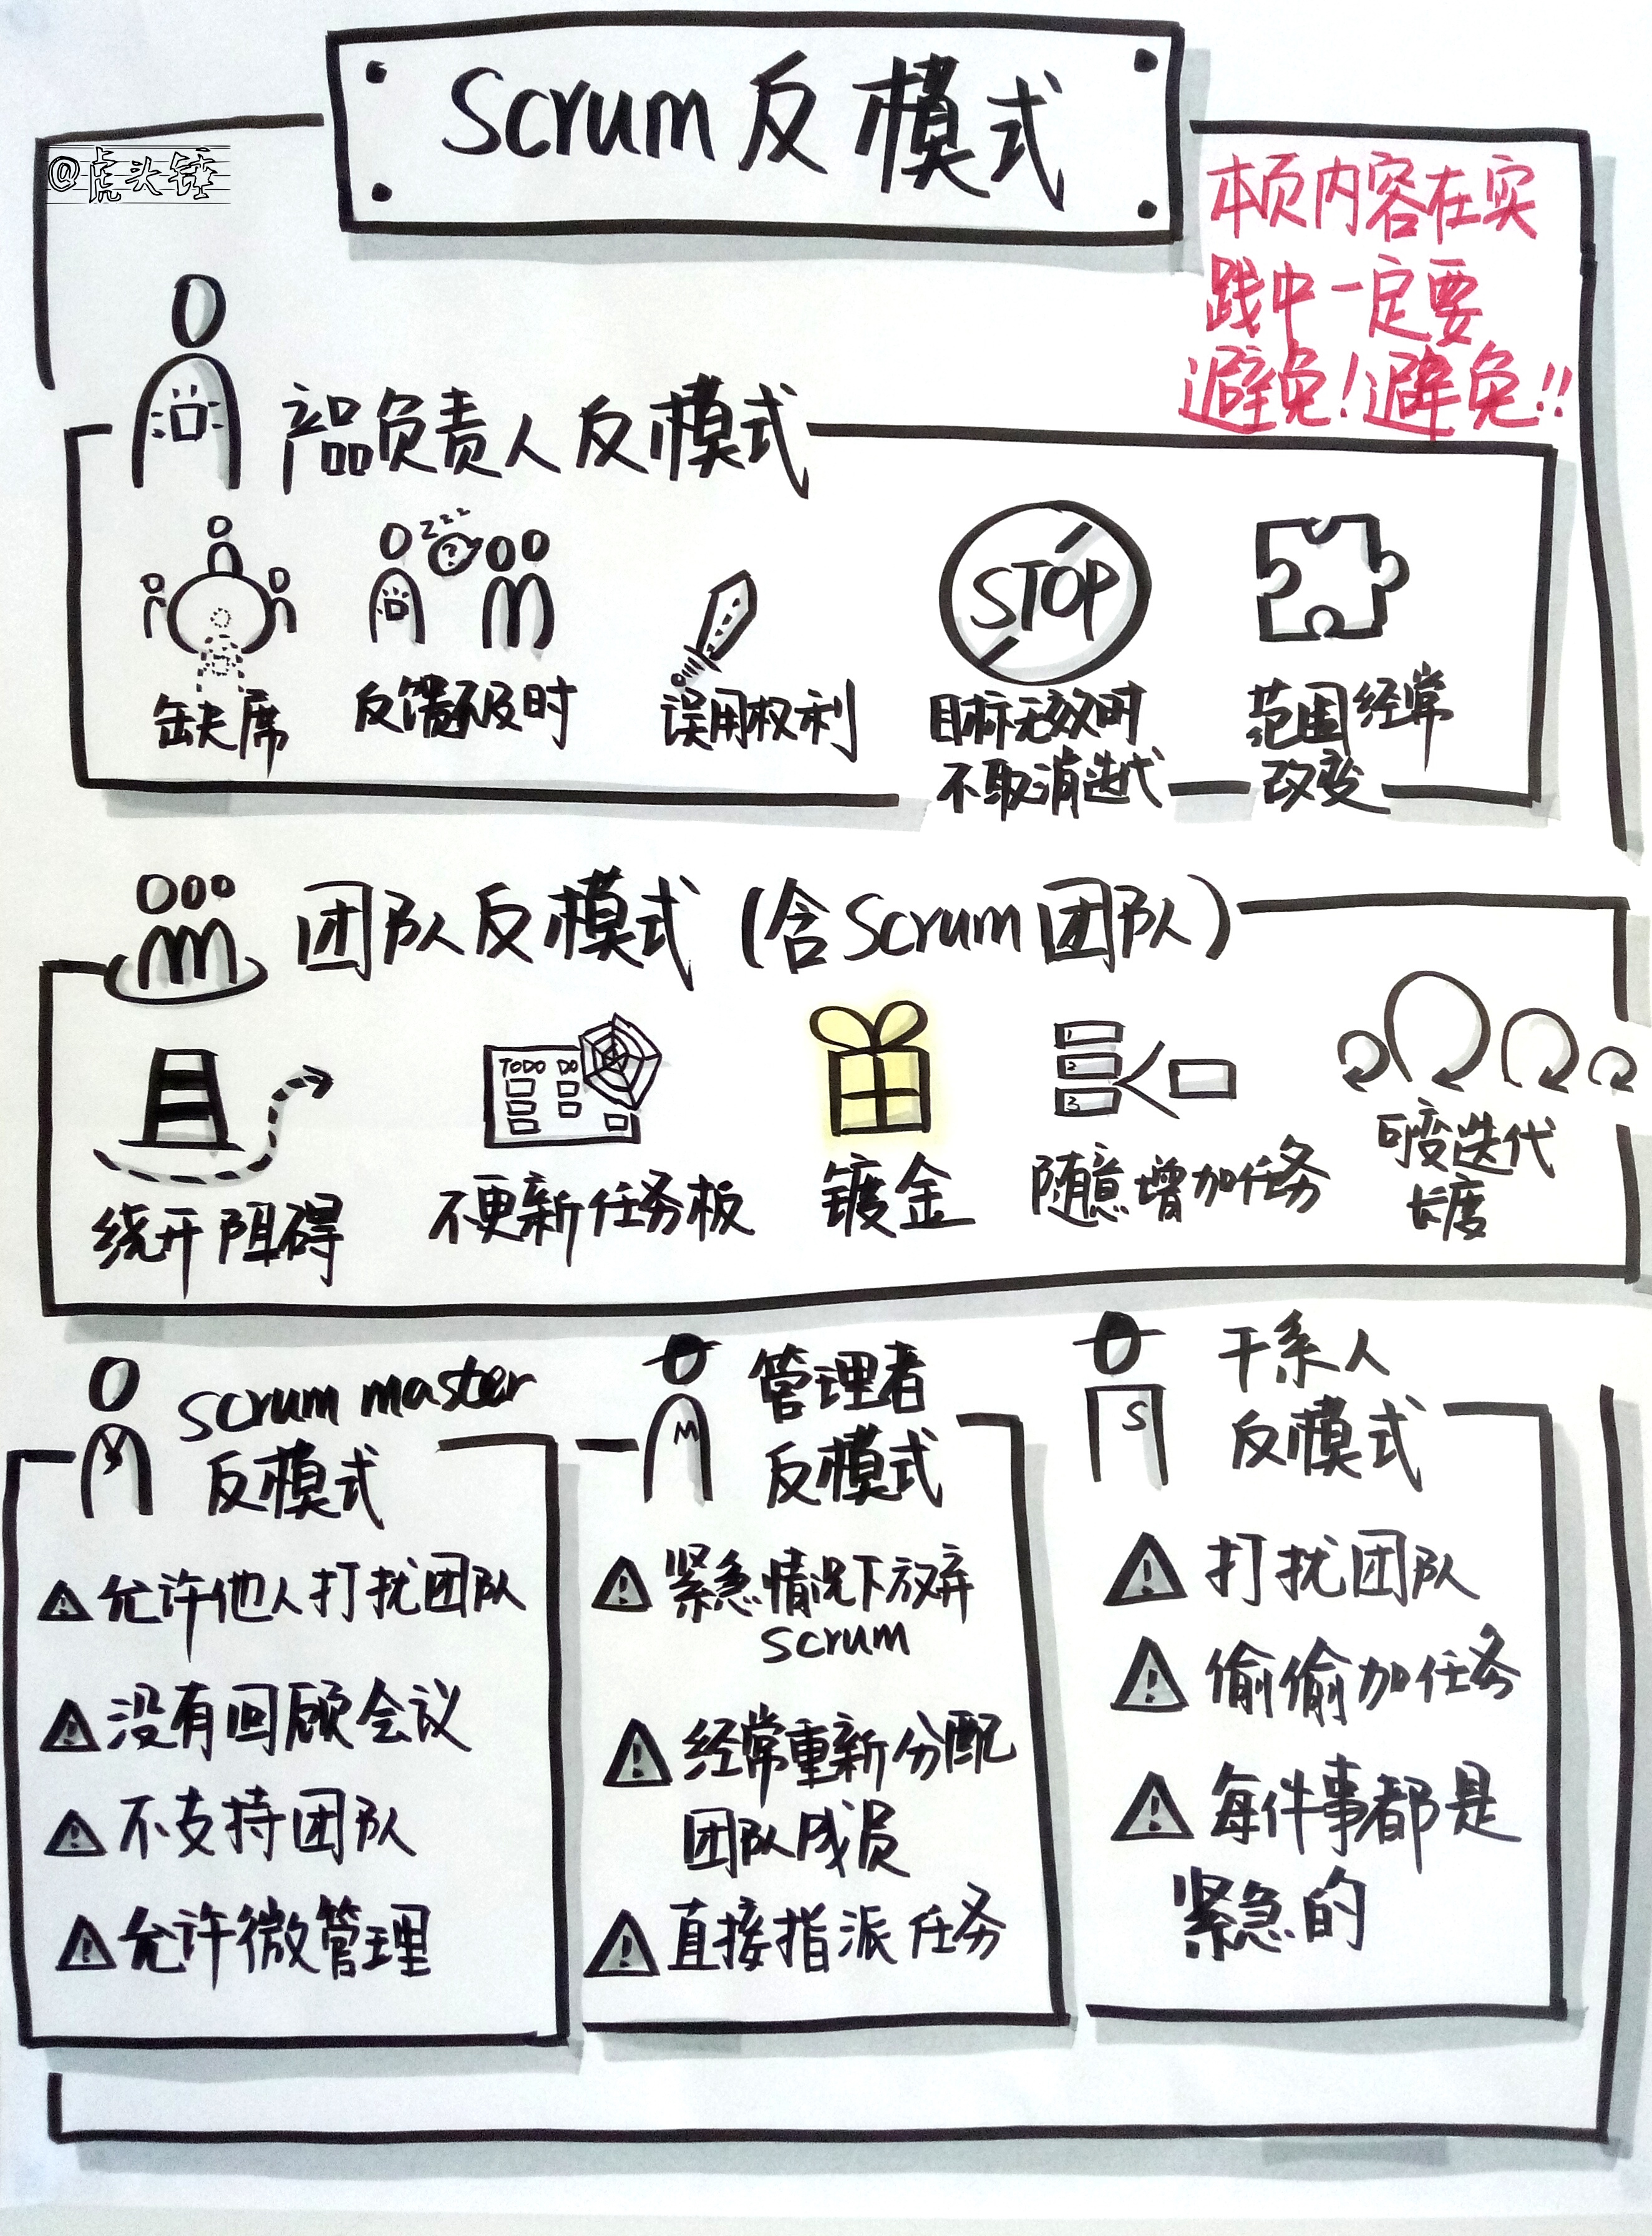 Scrum 反模式
@虎头锤
本页内容在实
践中一定要
避免!避免!!
产品负责人反模式
zzz
?
STOP
缺席
反馈不及时
误用权利
目标无效时
不取消迭代
范围经常
改变
团队反模式(含Scrum团队)
TODO DO
1
2
3
绕开阻碍
不更新任务板
镀金
随意增加任务
可变迭代
长度
scrum master
反模式
允许他人打扰团队
没有回顾会议
不支持团队
允许微管理
M
管理者
反模式
紧急情况下放弃
scrum
经常重新分配
团队成员
直接指派任务
S
干系人
反模式
打扰团队
偷偷加任务
每件事都是
紧急的